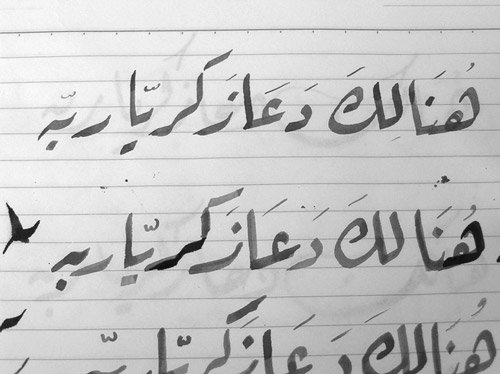 هُنَالِكَ دَعَا زَكَرِيَّا رَبَّهُ
هُنَالِكَ دَعَا زَكَرِيَّا رَبَّهُ
هُنَالِكَ دَعَا زَكَرِيَّا رَبَّهُ